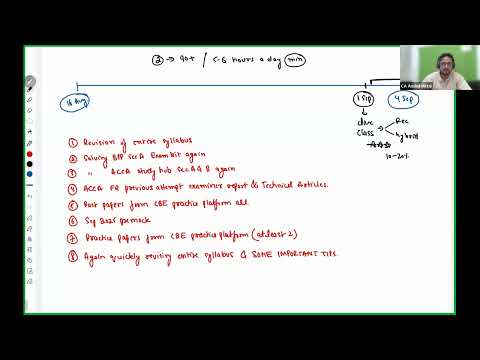 ② → 90+ / 5-6 hours a day min
CA Anshul Mittal
16 Aug
1 Sep
4 Sep
class
Rec
Hybrid
10-20%
① Revision of entire syllabus
② Solving BPP Sec A Exam kit again
③ " ACCA study hub Sec A & B again
④ ACCA FR previous attempt examiner report & Technical Articles.
⑤ Past papers from CBE practice platform all.
⑥ Sep 2025 premock
⑦ Practice Papers from CBE practice platform (at least 2)
⑧ Again quickly revising entire syllabus & SOME IMPORTANT TIPS.